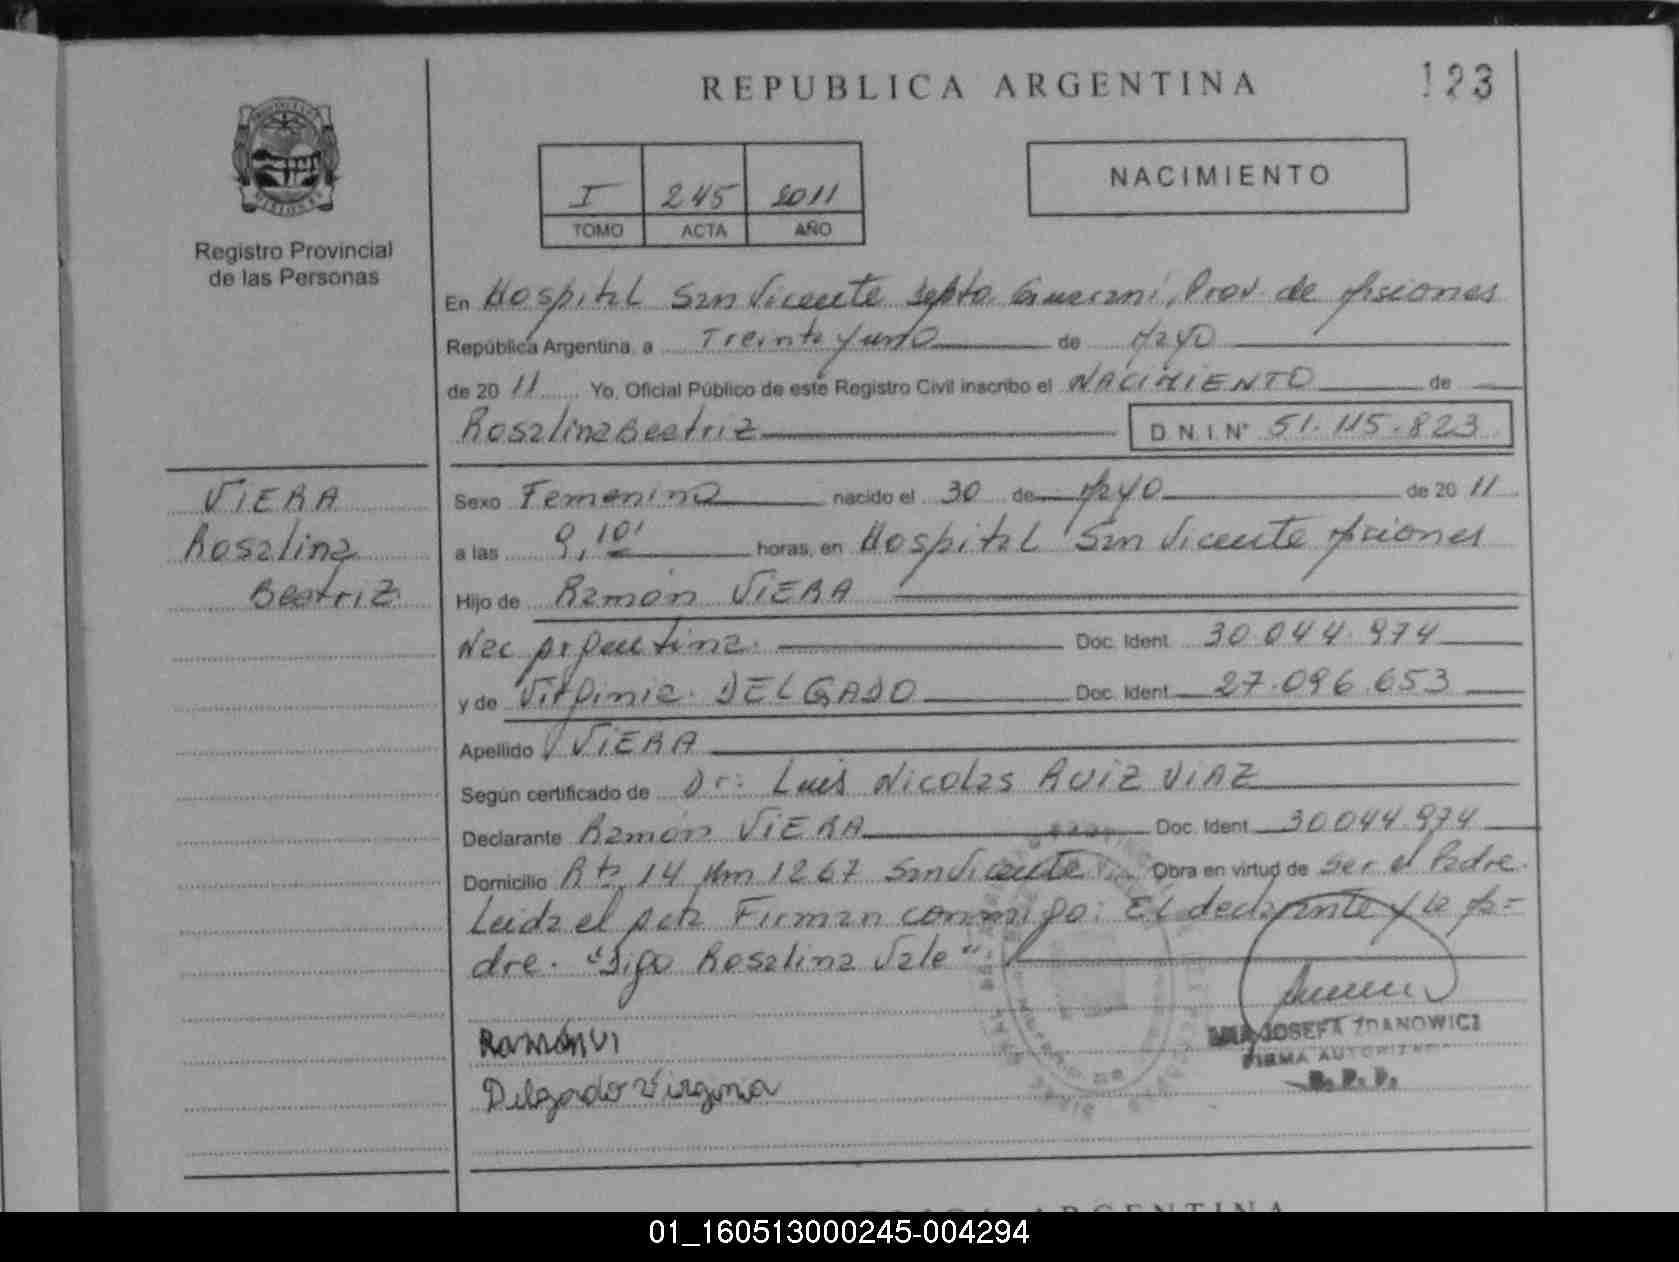 REPUBLICA ARGENTINA
123
I 245 2011
TOMO ACTA AÑO
NACIMIENTO
Registro Provincial
de las Personas
En Hospital San Vicente Depto. Guarani, Prov. de Misiones
República Argentina, a Treinta y uno de Mayo
de 20 11 Yo, Oficial Público de este Registro Civil inscribo el NACIMIENTO de
Rosalina Beatriz D.N.I. N° 51.115.823
VIERA
Rosalina
Beatriz
Sexo Femenino nacido el 30 de Mayo de 20 11
a las 9,10' horas, en Hospital San Vicente Misiones
Hijo de Ramón VIERA
Nac. Argentina. Doc. Ident. 30.044.974
y de Virginia DELGADO Doc. Ident. 27.096.653
Apellido VIERA
Según certificado de Dr: Luis Nicolas RUIZ DIAZ
Declarante Ramón VIERA Doc. Ident. 30044.974
Domicilio Rta 14 Km 1267 San Vicente Obra en virtud de Ser el Padre.
Leida el Acta Firman conmigo: El declarante y la Ma=
dre. "Digo Rosalina Vale".
Ramón Vi
Delgado Virginia
JOSEFA ZDANOWICZ
FIRMA AUTORIZADA
R. P. P.
REPUBLICA ARGENTINA
01_160513000245-004294